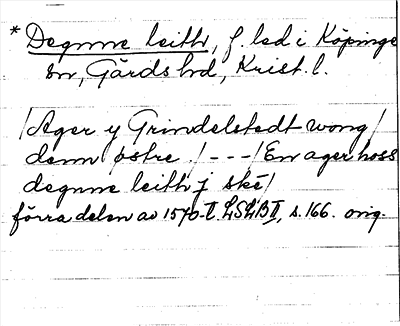 * Degnne leith, f. led i Köpinge
sn, Gärds hd, Krist. l.
/Ager y Grindelstedt wong/
denn østre ./ - - - /En ager hoss
degnne leith j ské/
förra delen av 1570-t. LSLB II, s. 166. orig.